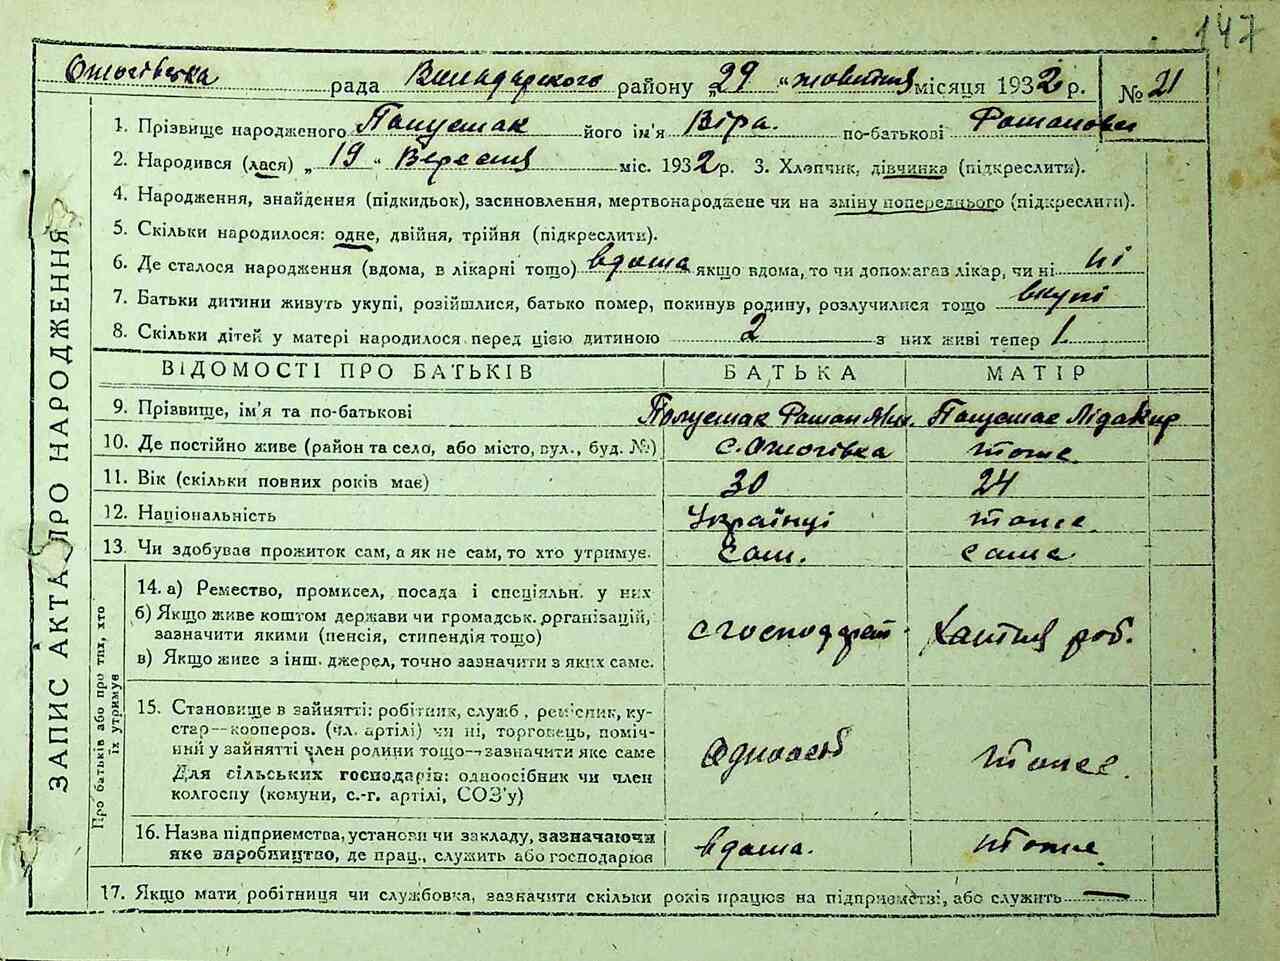 147
рада Винодарского району „29 " жовтня місяця 1932 р. № 21
1. Прізвище народженого Папушак його ім'я Віра. по-батькові Романовна
2. Народився (лася) „ 19 " Вересня міс. 1932 р. 3. Хлопчик, дівчинка (підкреслити).
4. Народження, знайдення (підкидьок), засиновлення, мертвонароджене чи на зміну попереднього (підкреслити).
5. Скільки народилося: одне, двійня, трійня (підкреслити).
6. Де сталося народження (вдома, в лікарні тощо) вдома якщо вдома, то чи допомагав лікар, чи ні ні
7. Батьки дитини живуть укупі, розійшлися, батько помер, покинув родину, розлучилися тощо вкупі
8. Скільки дітей у матері народилося перед цією дитиною 2 з них живі тепер 1
ЗАПИС АКТА ПРО НАРОДЖЕННЯ
ВІДОМОСТІ ПРО БАТЬКІВ БАТЬКА МАТІР
9. Прізвище, ім'я та по-батькові Папушак Роман Як. Папушак Ліда Кир
10. Де постійно живе (район та село, або місто, вул., буд. №) с. тоже.
11. Вік (скільки повних років має) 30 24
12. Національність Українці тоже.
13. Чи здобував прожиток сам, а як не сам, то хто утримує. Сам. сама
Про батьків або про тих, хто їх утримує
14. а) Ремество, промисел, посада і спеціяльн. у них
б) Якщо живе коштом держави чи громадськ. організацій, зазначити якими (пенсія, стипендія тощо)
в) Якщо живе з інш. джерел, точно зазначити з яких саме.
роб.
15. Становище в зайнятті: робітник, служб., ремісник, ку-
стар—кооперов. (чл. артілі) чи ні, торговець, поміч-
ний у зайнятті член родини тощо—зазначити яке саме
Для сільських господарів: одноосібник чи член
колгоспу (комуни, с.-г. артілі, СОЗ'у)
Одноосіб тоже.
16. Назва підприємства, установи чи закладу, зазначаючи
яке виробництво, де прац., служить або господарює вдома. тоже
17. Якщо мати робітниця чи службовка, зазначити скільки років працює на підприємстві, або служить —